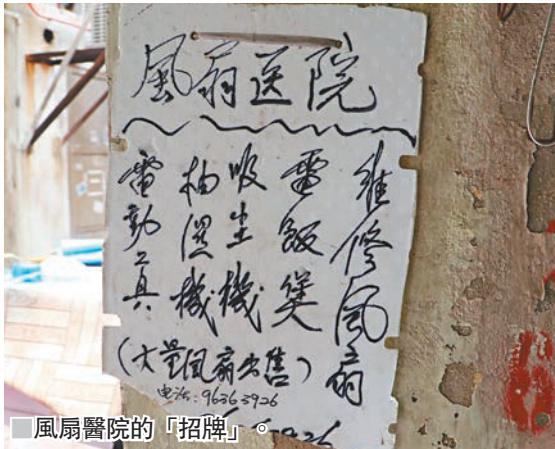 風扇医院
維修风扇
電飯煲
吸尘機
抽湿機
電動工具
(大量风扇出售)
电话:96363926
■風扇醫院的「招牌」。